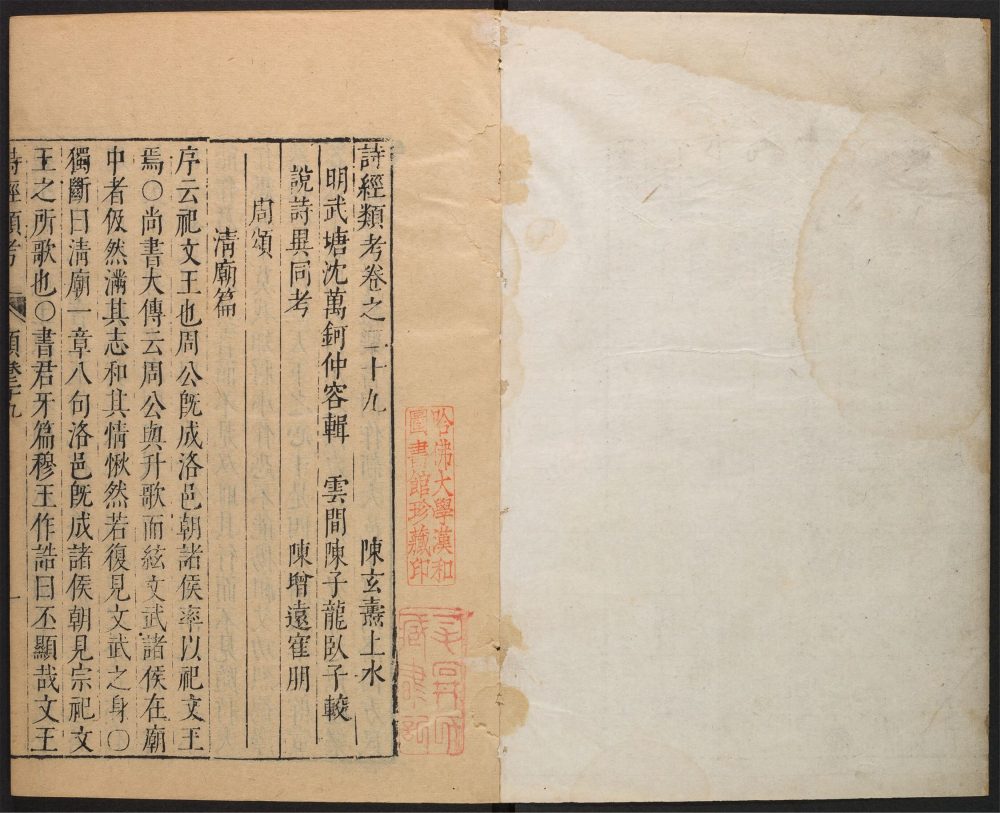 詩經類考卷之二十九
陳玄燾上水
明武塘沈萬鈳仲容輯 雲間陳子龍臥子較
陳增遠寉朋
說詩異同考
周頌
清廟篇
序云祀文王也周公旣成洛邑朝諸侯率以祀文王
焉○尚書大傳云周公與升歌而絃文武諸侯在廟
中者伋然淵其志和其情愀然若復見文武之身○
獨斷曰清廟一章八句洛邑旣成諸侯朝見宗祀文
王之所歌也○書君牙篇穆王作誥曰丕顯哉文王
詩經類考
卷二十九
一
哈佛大學漢和
圖書館珍藏印